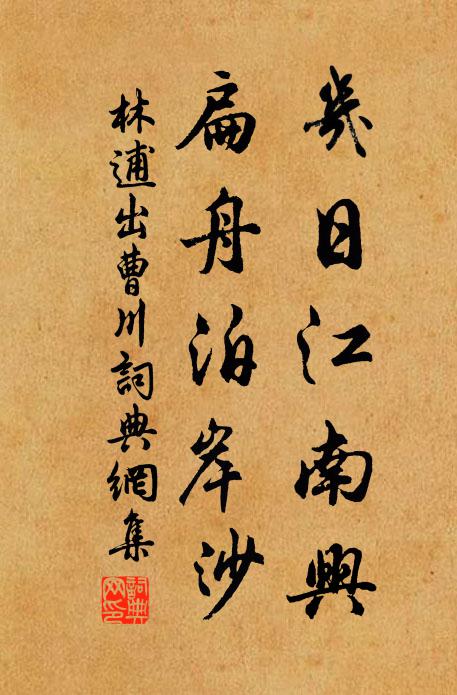 幾日江南興
扁舟泊岸沙
林逋出曹川詞典網集
詞典
网印